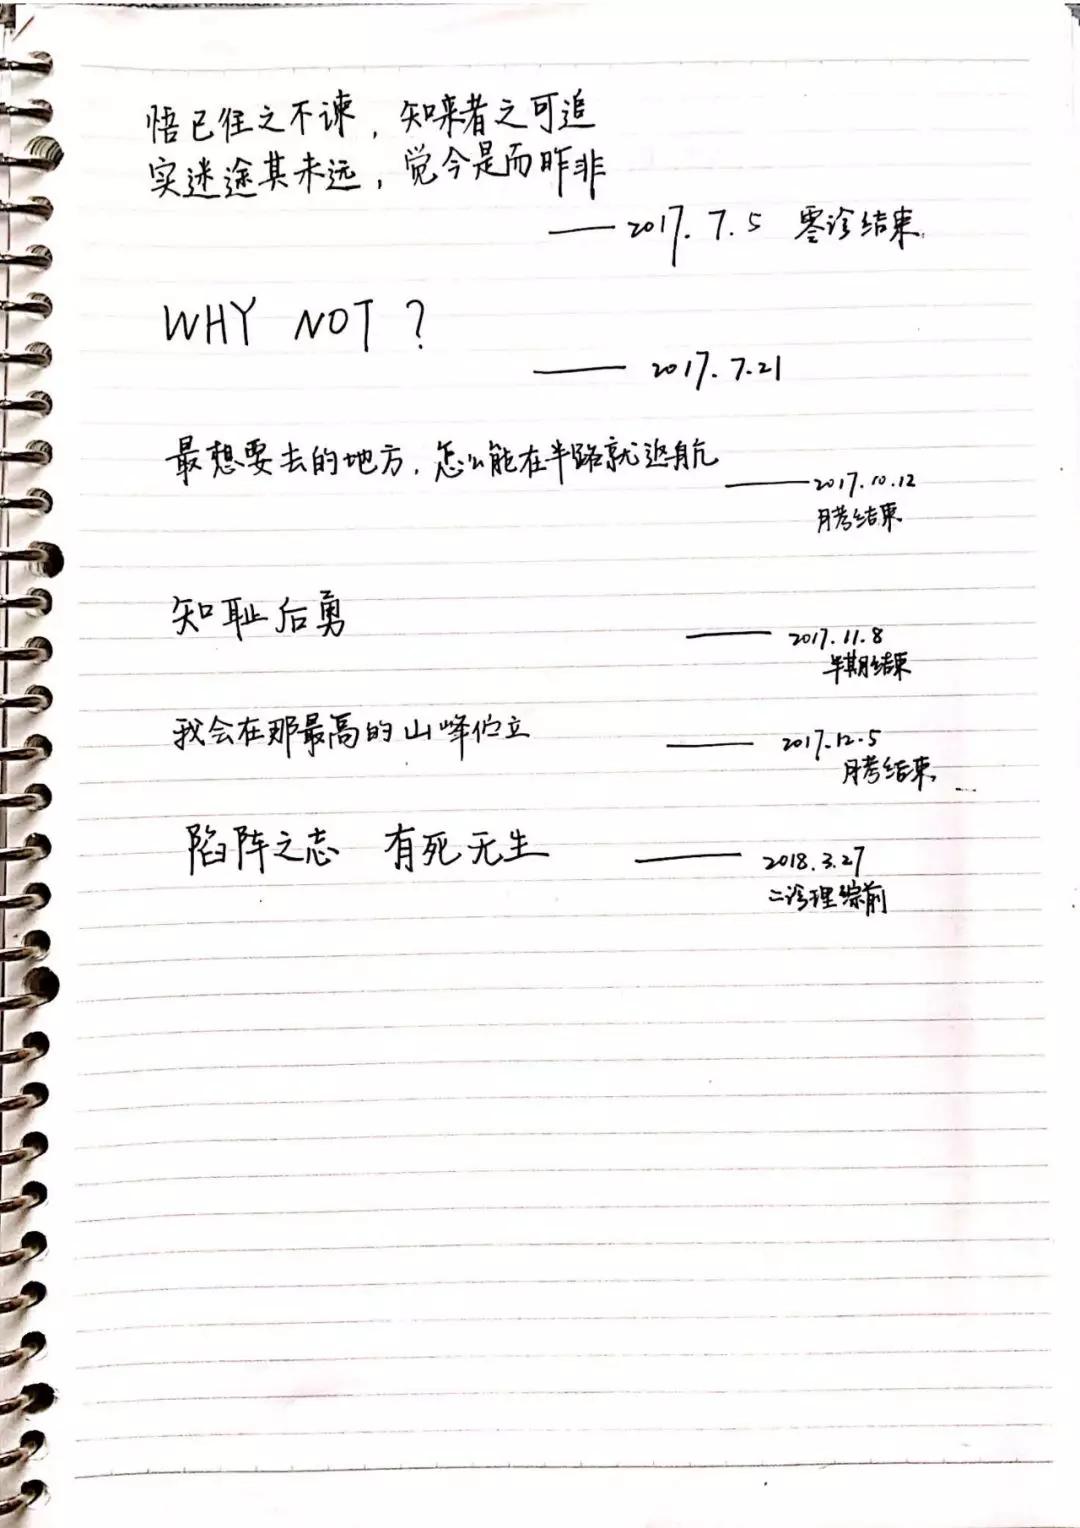 悟已往之不谏，知来者之可追
实迷途其未远，觉今是而昨非
——2017.7.5 零诊结束
WHY NOT？
——2017.7.21
最想要去的地方，怎么能在半路就返航
——2017.10.12
月考结束
知耻后勇
——2017.11.8
半期结束
我会在那最高的山峰伫立
——2017.12.5
月考结束
陷阵之志 有死无生
——2018.3.27
二诊理综前